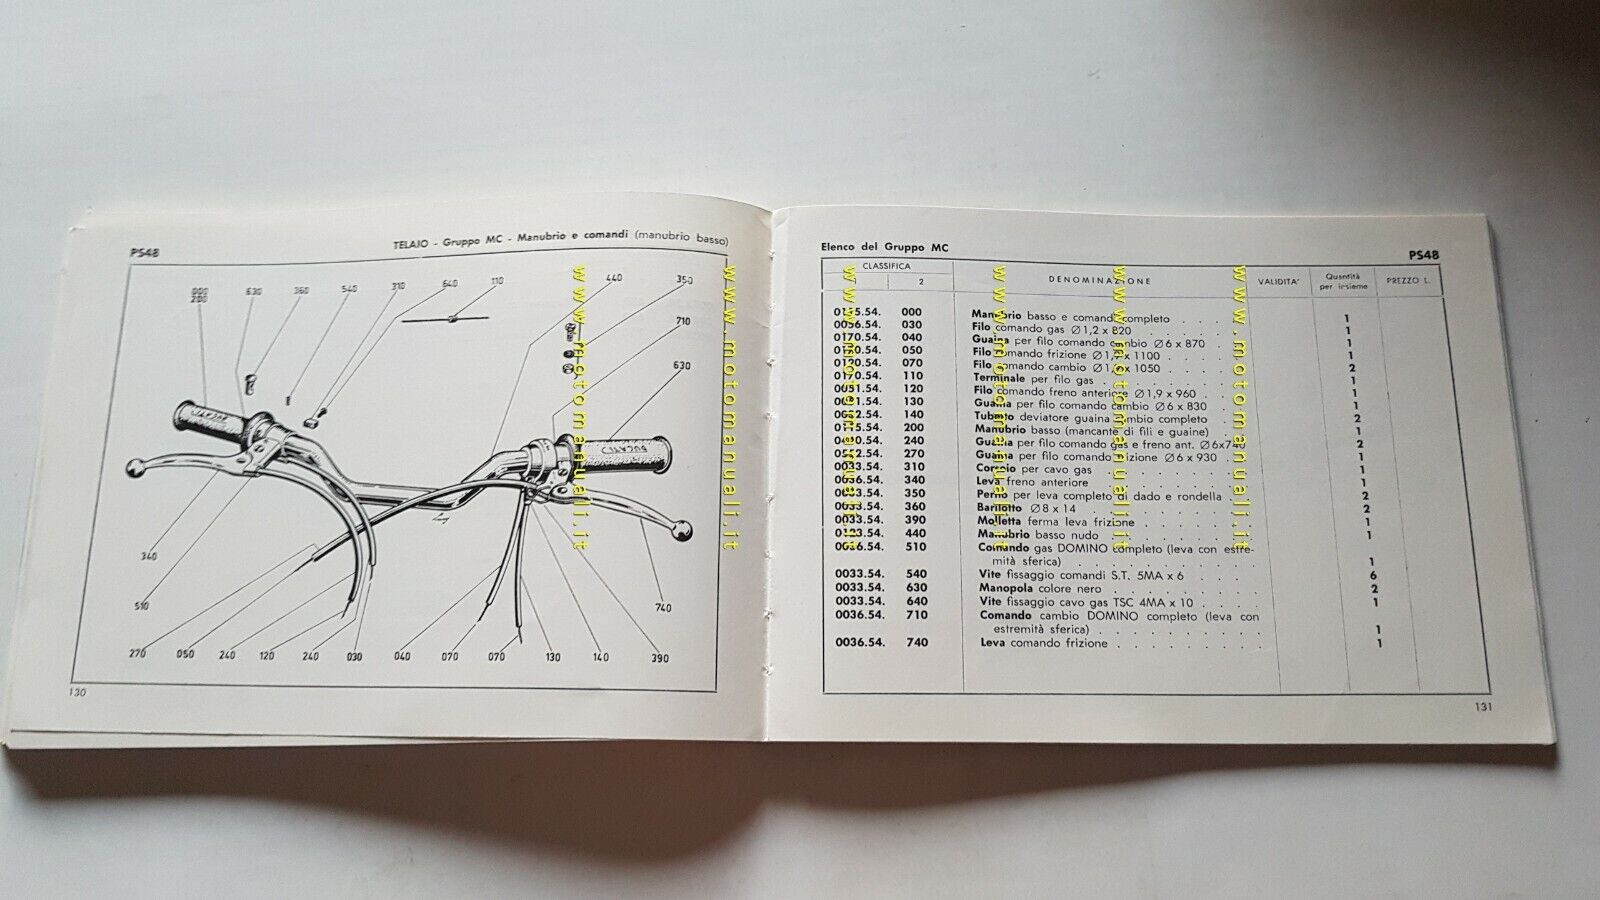 PS48
TELAIO - Gruppo MC - Manubrio e comandi (manubrio basso)
000 630 360 540 310 640 110 440 350
200
710
630
DUCATI
DUCATI
340
510
740
270 050 240 120 240 030 040 070 070 130 140 390
130
Elenco del Gruppo MC
PS48
CLASSIFICA
1 2
DENOMINAZIONE
VALIDITA'
Quantità per insieme
PREZZO L.
54. 000 Manubrio basso e comandi completo 1
54. 030 Filo comando gas Ø 1,2 x 820 1
0170.54. 040 Guaina per filo comando cambio Ø 6 x 870 1
54. 050 Filo comando frizione x 1100 1
54. 070 Filo comando cambio x 1050 2
0170.54. 110 Terminale per filo gas 1
54. 120 Filo comando freno anteriore Ø 1,9 x 960 1
54. 130 Guaina per filo comando cambio Ø 6 x 830 1
54. 140 Tubetto deviatore guaina cambio completo 2
54. 200 Manubrio basso (mancante di fili e guaine) 1
54. 240 Guaina per filo comando gas e freno ant. Ø 6x740 2
54. 270 Guaina per filo comando frizione Ø 6 x 930 1
0033.54. 310 per cavo gas 1
0036.54. 340 Leva freno anteriore 1
0033.54. 350 Perno per leva completo di dado e rondella 2
0033.54. 360 Barilotto Ø 8 x 14 2
0033.54. 390 Molletta ferma leva frizione 1
54. 440 Manubrio basso nudo 1
0036.54. 510 Comando gas DOMINO completo (leva con estre-
mità sferica) 1
0033.54. 540 Vite fissaggio comandi S.T. 5MA x 6 6
0033.54. 630 Manopola colore nero 2
0033.54. 640 Vite fissaggio cavo gas TSC 4MA x 10 1
0036.54. 710 Comando cambio DOMINO completo (leva con
estremità sferica) 1
0036.54. 740 Leva comando frizione 1
131
www.motomanuali.it
www.motomanuali.it
www.motomanuali.it
www.motomanuali.it
www.motomanuali.it
www.motomanuali.it